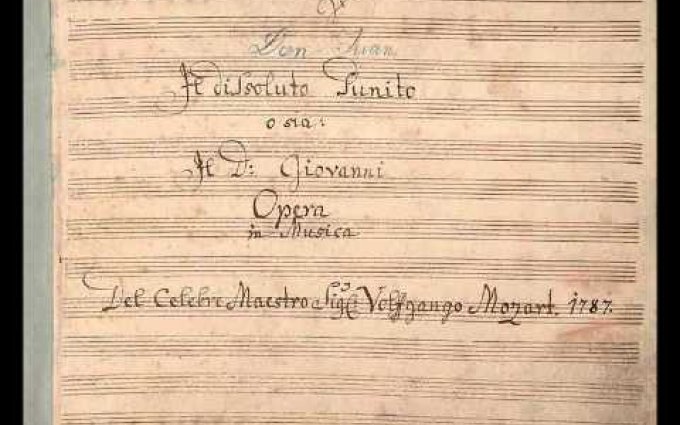 Don Juan
Il dissoluto Punito
o sia:
Il D: Giovanni
Opera
in Musica
Del Celebre Maestro Sig: Volfgango Mozart. 1787.